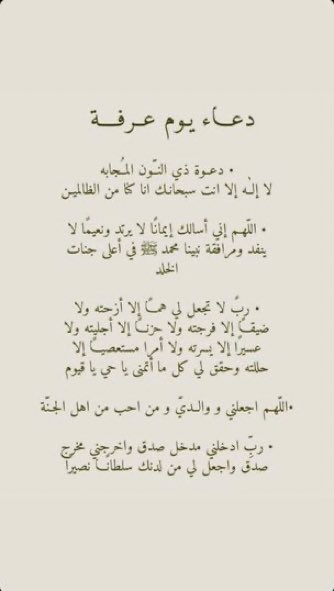 دعـــاء يـوم عـرفــة
• دعـوة ذي النـّـون المـُـجابه
لا إلـٰـه إلا انت سبحانـك انا كنا من الظالميـن
• اللّهـم إني أسالك إيمانًا لا يرتد ونعيمًا لا
ينفد ومرافقة نبينا محمد ﷺ في أعلى جنات
الخلد
• ربً لا تجعل لي همــًا إلا أزحته ولا
ضيقــًا إلا فرجته ولا حزنــًا إلا أجليته ولا
عسيرًا إلا يسرته ولا أمرا مستعصيــًا إلا
حللته وحقق لي كل ما أتمنى يا حي يا قيوم
•اللّهـم اجعلني و والــديّ و من احب من اهل الجنـّة
• ربِّ ادخلني مدخل صدق واخرجني مخرج
صدق واجعل لي من لدنك سلطانــًا نصيرًا